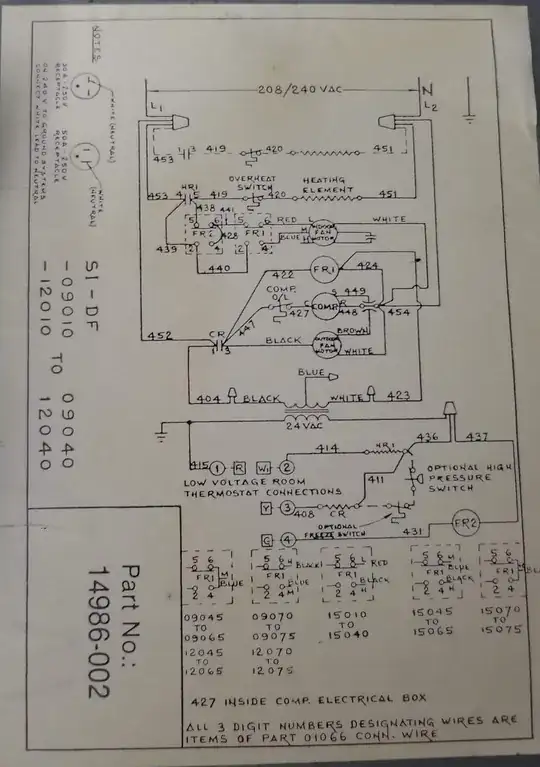 NOTES
WHITE (NEUTRAL)
30A - 250V
RECEPTACLE
WHITE
(NEUTRAL)
50A - 250V
RECEPTACLE
ON 240 V TO GROUND SYSTEMS
CONNECT WHITE LEAD TO NEUTRAL
SI-DF
-09010 TO 09040
-12010 12040
Part No.:
14986-002
208/240 VAC
N
L1
L2
453 1 3 419 420 451
OVERHEAT
SWITCH
HEATING
ELEMENT
HR1
453 4 5 419 420 451
438 441
5 6 5 6 RED L WHITE
FR2 428 FR1 BLUE H INDOOR FAN MOTOR
2 4 2 4
439
440
422 FR1 424
COMP.
O/L
S 449
447 427 C COMP R 448 454
452
CR
1 3
BROWN
BLACK OUTDOOR FAN MOTOR
WHITE
BLUE
404 BLACK WHITE 423
24 VAC
415 1 R W1 2 414 HR1 436 437
LOW VOLTAGE ROOM
THERMOSTAT CONNECTIONS
411
OPTIONAL HIGH
PRESSURE
SWITCH
Y 3 408 CR
OPTIONAL
FREEZE SWITCH
G 4 431 FR2
5 6 5 6 H BLACK 5 6 RED 5 6 H BLUE 5 6
FR1 M BLUE FR1 BLUE FR1 BLACK FR1 BLACK FR1
2 4 2 4 M 2 4 H 2 4 2 4
09045
TO
09065
12045
TO
12065
09070
TO
09075
12070
TO
12075
15010
TO
15040
15045
TO
15065
15070
TO
15075
427 INSIDE COMP. ELECTRICAL BOX
ALL 3 DIGIT NUMBERS DESIGNATING WIRES ARE
ITEMS OF PART 01066 CONN. WIRE